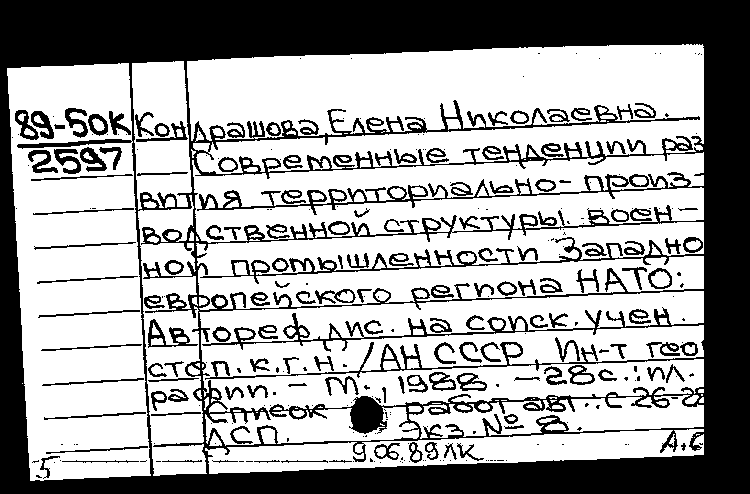 89-5ОК Кондрашова, Елена Николаевна.
2597 Современные тенденции раз
вития территориально-произ-
водственной структуры воен-
ной промышленности Западно
европейского региона НАТО:
Автореф. дис. на соиск. учен.
степ. к.г.н. /АН СССР, Ин-т геог
рафии. - М., 1988. - 28с.: ил.
Список работ авт.: с 26-28
ДСП. Экз. № 8.
9.06.89ЛК
5